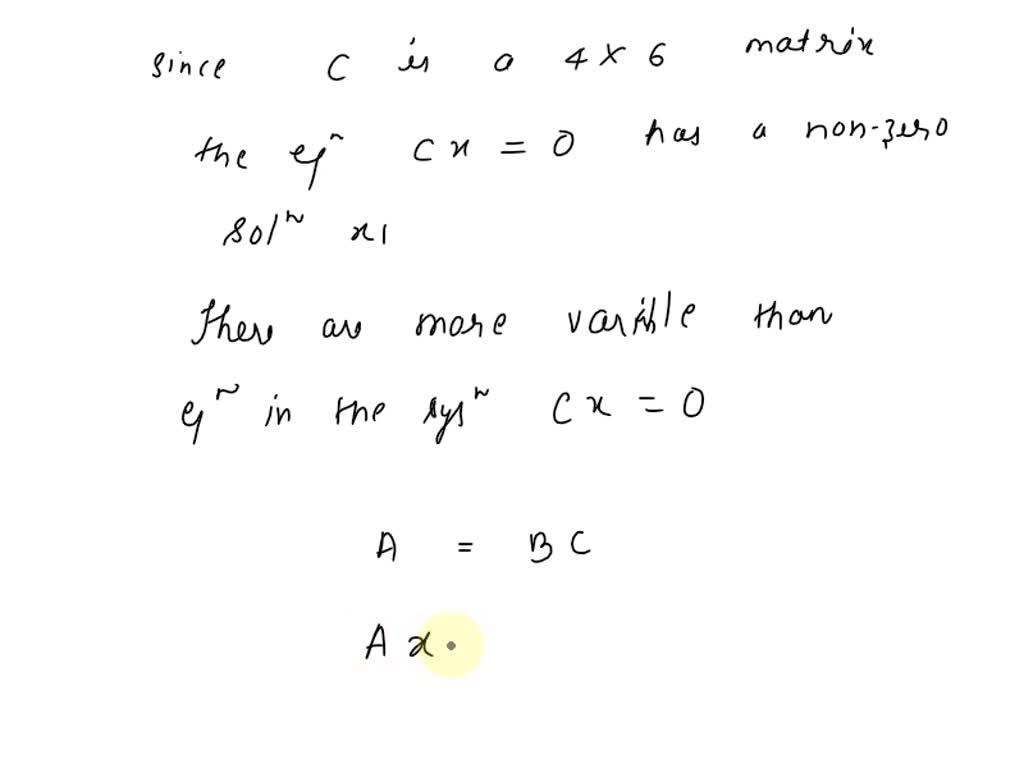 since C is a 4 × 6 matrix
the eqⁿ Cx = 0 has a non-zero
solⁿ x1
There are more varible than
eqⁿ in the sysⁿ Cx = 0
A = BC
A x